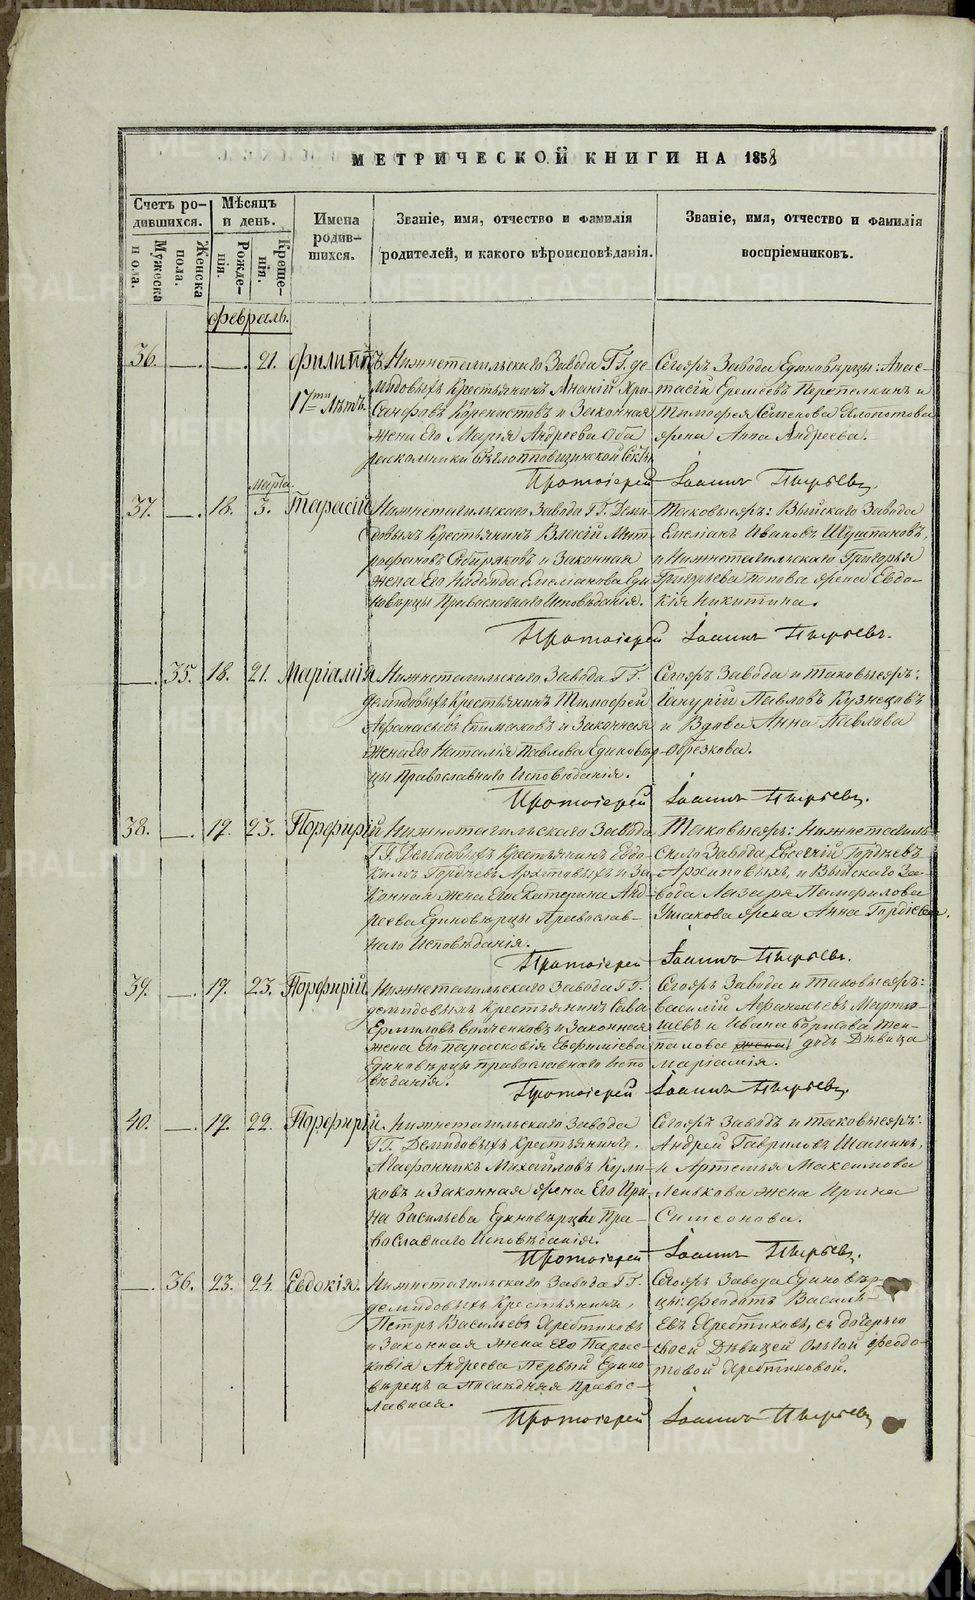 МЕТРИЧЕСКОЙ КНИГИ НА 1858
Счетъ ро-
дившихся.
Мужеска
пола.
Женска
пола.
Мѣсяцъ
и день.
Рожде-
нія.
Креще-
нія.
Имена
родив-
шихся.
Званіе, имя, отчество и фамилія
родителей, и какого вѣроисповѣданія.
Званіе, имя, отчество и фамилія
воспріемниковъ.
Февраль.
36. — — 21.
17ти Лѣтъ.
Нижнетагильскаго Завода Г.г. Де-
мидовыхъ Крестьянинъ Ананій
и Законная
жена Его Марія Андреева Оба
раскольники
Сегожъ Завода Единовѣрцы:
и
Тимофея Семенова
жена Анна Андреева.
Протоіерей Іоаннъ Пырьевъ.
Марта.
37. — 18. 3. Тарасій
Нижнетагильскаго Завода Г.Г. Деми-
довыхъ Крестьянинъ Мит-
рофановъ Сибиряковъ и Законная
жена Его Надежда Емелианова Еди-
новѣрцы Православнаго Исповѣданія.
Таковыежъ: Выйскаго Завода
Емеліанъ Ивановъ
и Нижнетагильскаго Григорья
Григорьева Попова жена Евдо-
кія Никитина.
Протоіерей Іоаннъ Пырьевъ.
— 35. 18. 21. Маріамія
Нижнетагильскаго Завода Г.Г.
Демидовыхъ Крестьянинъ Тимофей
Афанасьевъ и Законная
жена Его Наталія Павлова Единовѣр-
цы Православнаго Исповѣданія.
Сегожъ Завода и таковыежъ:
Павловъ Кузнецовъ
и Вдова Анна Павлова
Обрезкова.
Протоіерей Іоаннъ Пырьевъ.
38. — 19. 23. Порфирій
Нижнетагильскаго Завода
Г.Г. Демидовыхъ Крестьянинъ Евдо-
кимъ Гордѣевъ Архиповыхъ и За-
конная жена Его Екатерина Анд-
реева Единовѣрцы Православ-
наго Исповѣданія.
Таковыежъ: Нижнетагиль-
скаго Завода Гордѣевъ
Архиповыхъ, и Выйскаго За-
вода Лазаря Памфилова
Ушакова жена Анна Гордѣева.
Протоіерей Іоаннъ Пырьевъ.
39. — 19. 23. Порфирій
Нижнетагильскаго Завода Г.Г.
Демидовыхъ Крестьянинъ Сава
Ермиловъ и Законная
жена Его Парасковія Евфиміева
Единовѣрцы Православнаго Испо-
вѣданія.
Сегожъ Завода и таковыежъ:
Василій Афанасьевъ
и Ивана Борисова
жена дочь Дѣвица
Маріамія.
Протоіерей Іоаннъ Пырьевъ.
40. — 19. 22. Порфирій.
Нижнетагильскаго Завода
Г.Г. Демидовыхъ Крестьянинъ
Агафонникъ Михайловъ
и Законная жена Его Ири-
на Васильева Единовѣрцы Пра-
вославнаго Исповѣданія.
Сегожъ Завода и таковыежъ:
Андрей Гавриловъ
и Артемья Максимова
жена Ирина
Симеонова.
Протоіерей Іоаннъ Пырьевъ.
— 36. 23. 24. Евдокія.
Нижнетагильскаго Завода Г.Г.
Демидовыхъ Крестьянинъ
Петръ Васильевъ Хребтиковъ
и Законная жена Его Парас-
ковія Андреева Первый Едино-
вѣрецъ а Послѣдняя Правос-
лавная.
Сегожъ Завода Единовѣр-
цы: Феодотъ Василь-
евъ Хребтиковъ, съ дочерью
своей Дѣвицей Ольгой Феодо-
товой Хребтиковой.
Протоіерей Іоаннъ Пырьевъ
METRIKI.GASO-URAL.RU